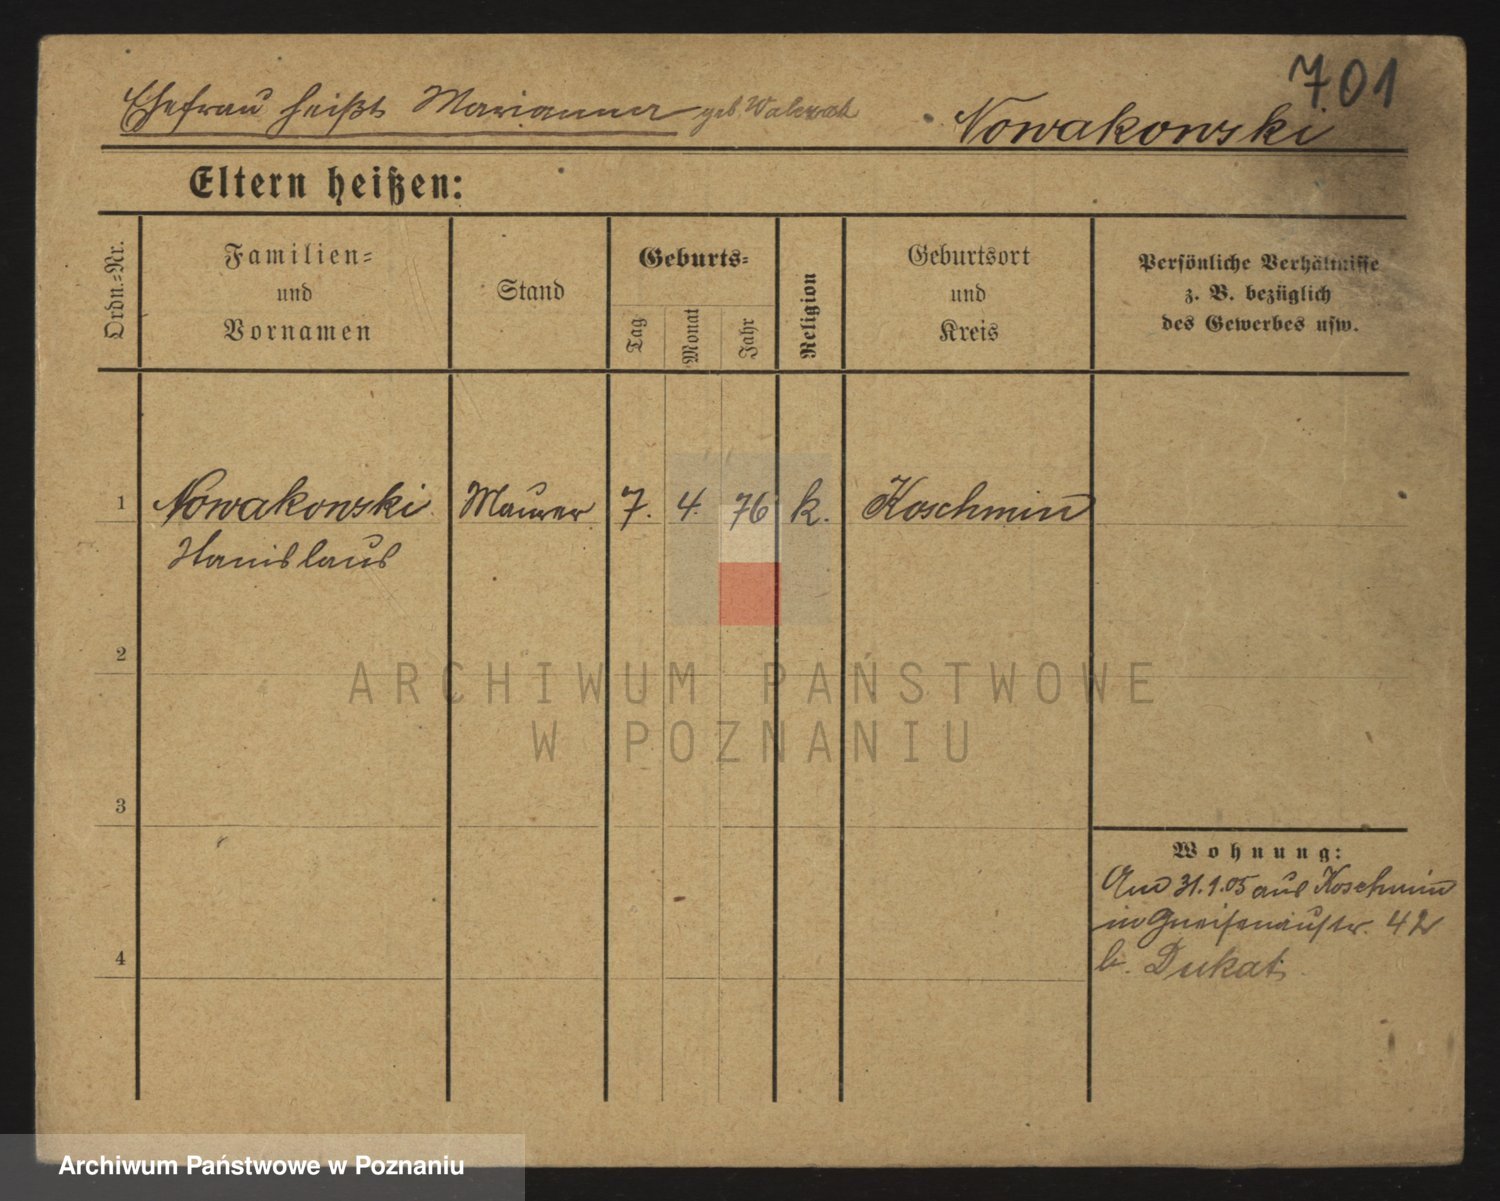 701
Ehefrau heißt Marianna geb. Walczak
Nowakowski
Eltern heißen:
Ordn.-Nr.
Familien-
und
Vornamen
Stand
Geburts-
Tag
Monat
Jahr
Religion
Geburtsort
und
Kreis
Persönliche Verhältnisse
z. B. bezüglich
des Gewerbes usw.
1
Nowakowski
Stanislaus
Maurer
7.
4.
76
k.
Koschmin
2
3
4
Wohnung:
Am 31.1.05 aus Koschmin
in Gneisenaustr. 42
b. Dukat
ARCHIWUM PAŃSTWOWE
W POZNANIU
Archiwum Państwowe w Poznaniu